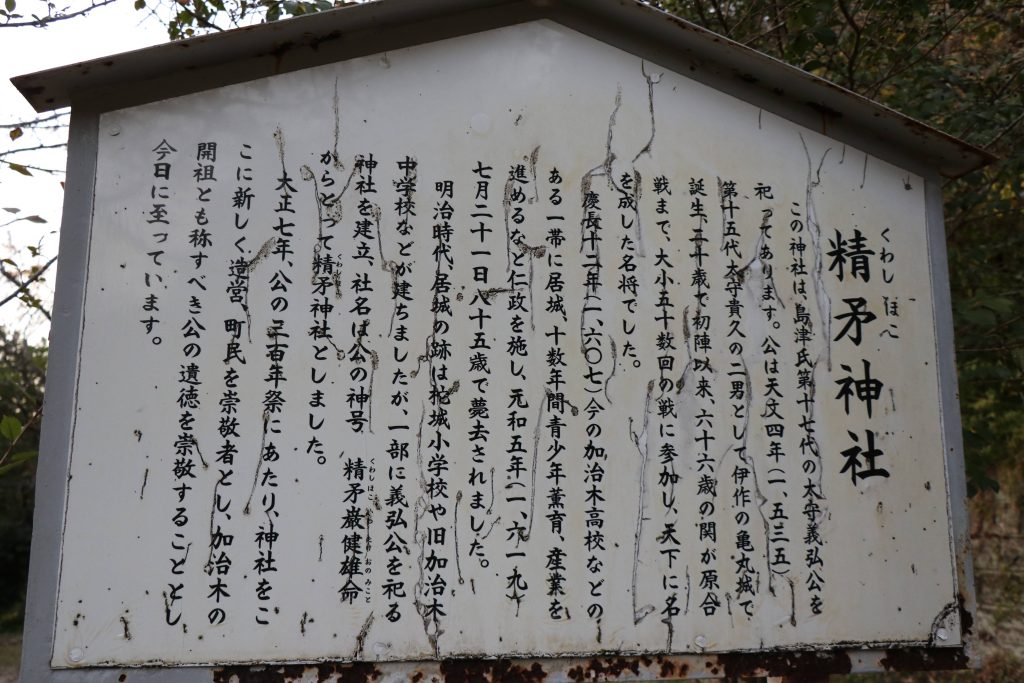 精矛神社
くわしほこ
この神社は、島津氏第十七代の太守義弘公を
祀ってあります。公は天文四年(一、五三五)
第十五代太守貴久の二男として伊作の亀丸城で、
誕生、二十歳で初陣以来、六十六歳の関が原合
戦まで、大小五十数回の戦に参加し、天下に名
を成した名将でした。
慶長十二年(一、六〇七)今の加治木高校などの
ある一帯に居城、十数年間青少年薫育、産業を
進めるなど仁政を施し、元和五年(一、六一九)
七月二十一日八十五歳で薨去されました。
明治時代、居城の跡は柁城小学校や旧加治木
中学校などが建ちましたが、一部に義弘公を祀る
神社を建立、社名は公の神号 精矛厳健雄命
くわしほこ おのみこと
からとって精矛神社としました。
大正七年、公の三百年祭にあたり、神社をこ
こに新しく造営、町民を崇敬者とし、加治木の
開祖とも称すべき公の遺徳を崇敬することとし
今日に至っています。